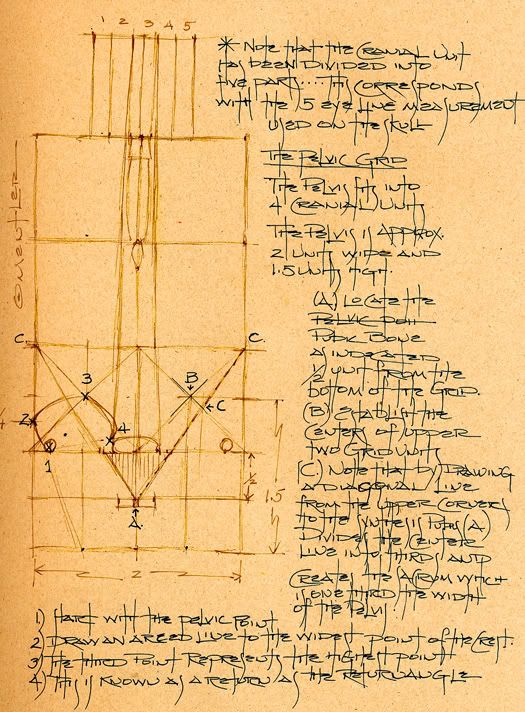 1 2 3 4 5
* Note that the cranial unit
has been divided into
five parts... This corresponds
with the 5 eye line measurement
used on the skull
The Pelvic Grid
The Pelvis fits into
4 (cranial) units
The Pelvis is approx.
2 units wide and
1.5 units hgt.
(A) Locate the
Pubic Bone
as indicated
1/2 unit from the
bottom of the grid.
(B) Establish the
center of upper
two grid units
(C) Note that by drawing
a diagonal line
from the upper corners
to the pubis (A)
divides the center
line into thirds and
creates the from which
is one third the width
of the pelvis.
© Mentler
C.
C.
3
B
C
2
4
1
1/2
1.5
A.
2
1) Start with the pelvic point
2) Draw an arced line to the widest point of the crest.
3) The third point represents the highest point
4) This is known as a return as the return angle